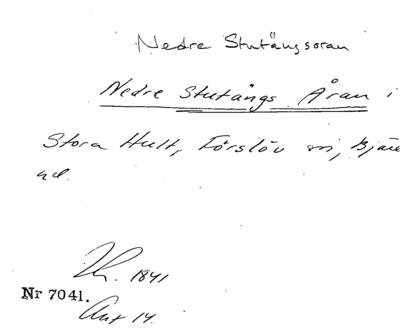 Nedre Stutängsoran
Nedre Stutängs Åran i
Stora Hult, Förslöv sn, Bjäre
hd.
1841
Nr 7041.
Akt 14.